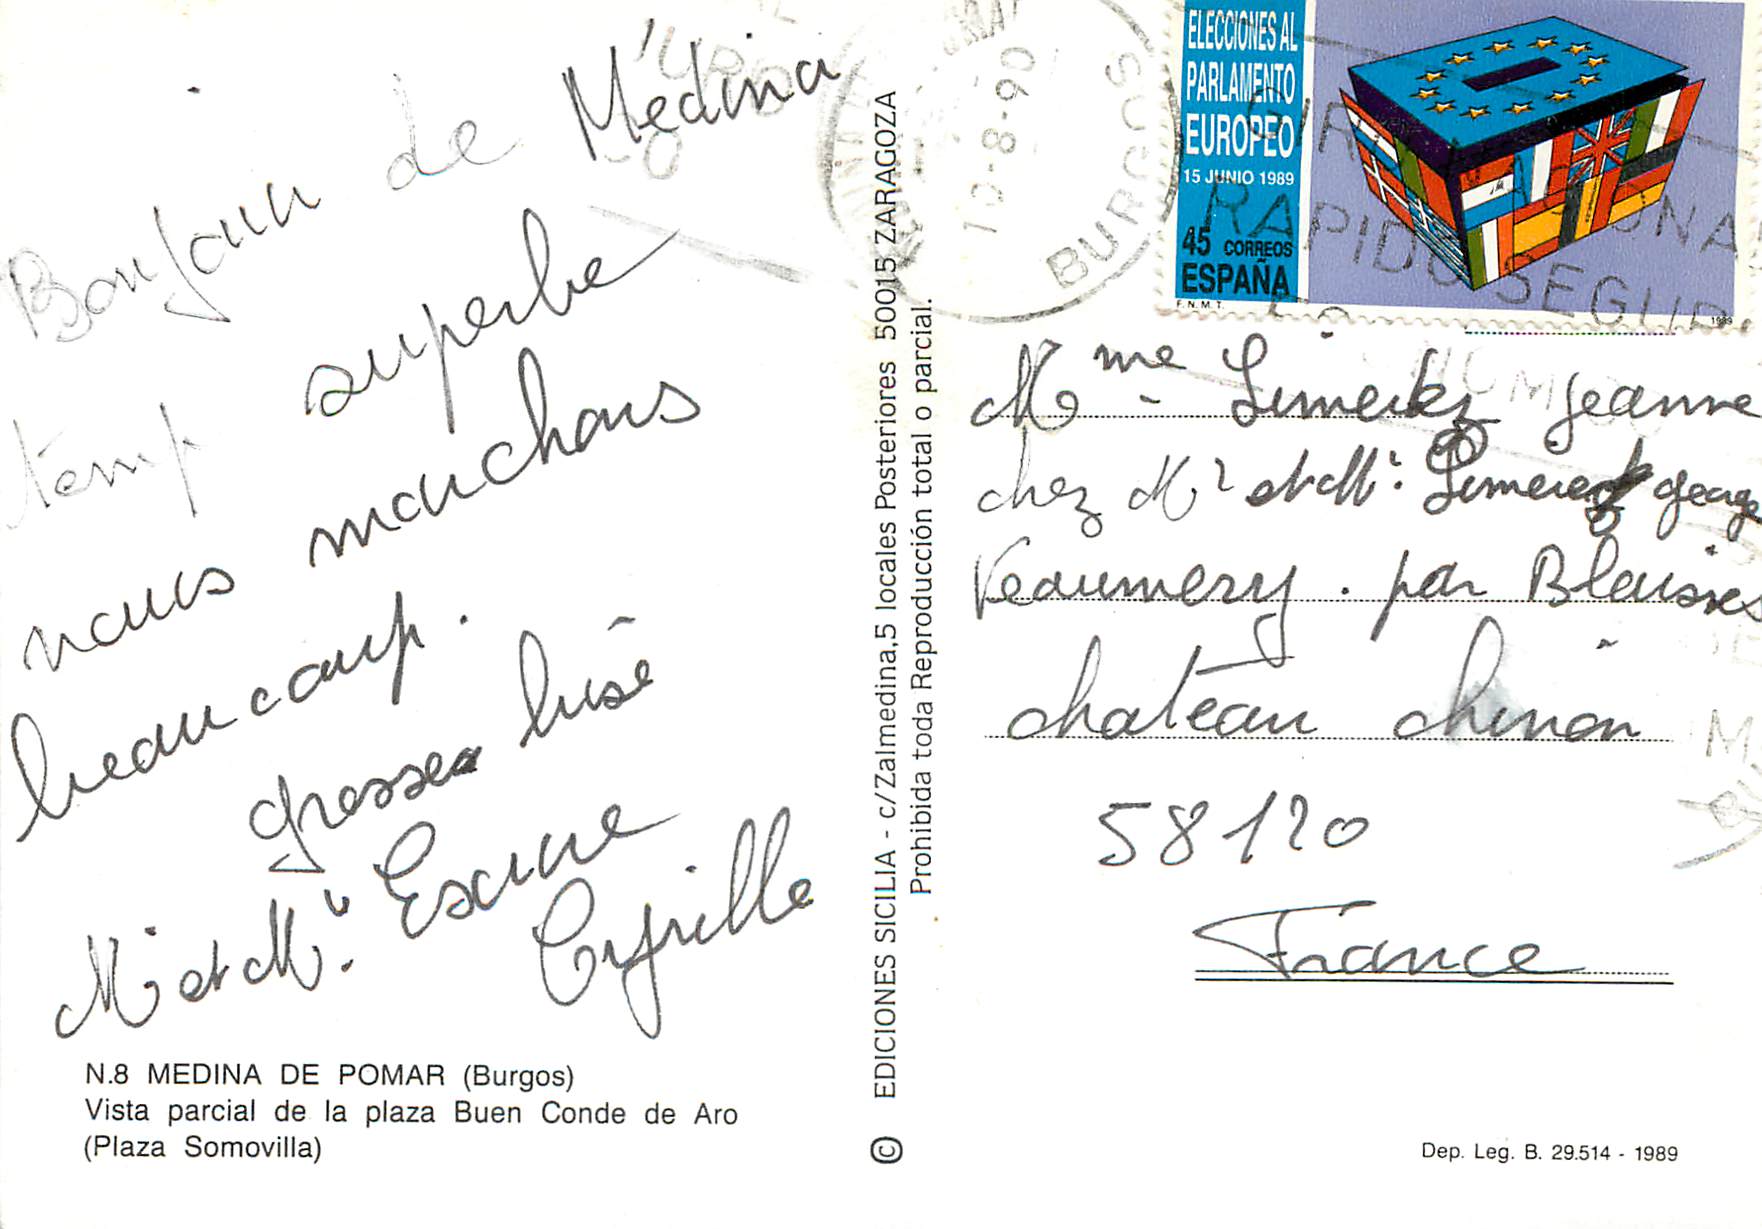 Bonjour de Médina
temp superbe
nous marchons
beaucoup.
grosses bisê
Mr et Mm.
Cyrille
N.8 MEDINA DE POMAR (Burgos)
Vista parcial de la plaza Buen Conde de Aro
(Plaza Somovilla)
© EDICIONES SICILIA - c/Zalmedina,5 locales Posteriores 50015 ZARAGOZA
Prohibida toda Reproducción total o parcial.
10-8-90
BURGOS
ELECCIONES AL
PARLAMENTO
EUROPEO
15 JUNIO 1989
45 CORREOS
ESPAÑA
F.N.M.T.
1989
RAPIDO SEGURO
Mme Jeanne
chez Mr et Mm. george
Veaumery. par
chateau chinon
58120
France
Dep. Leg. B. 29.514 - 1989